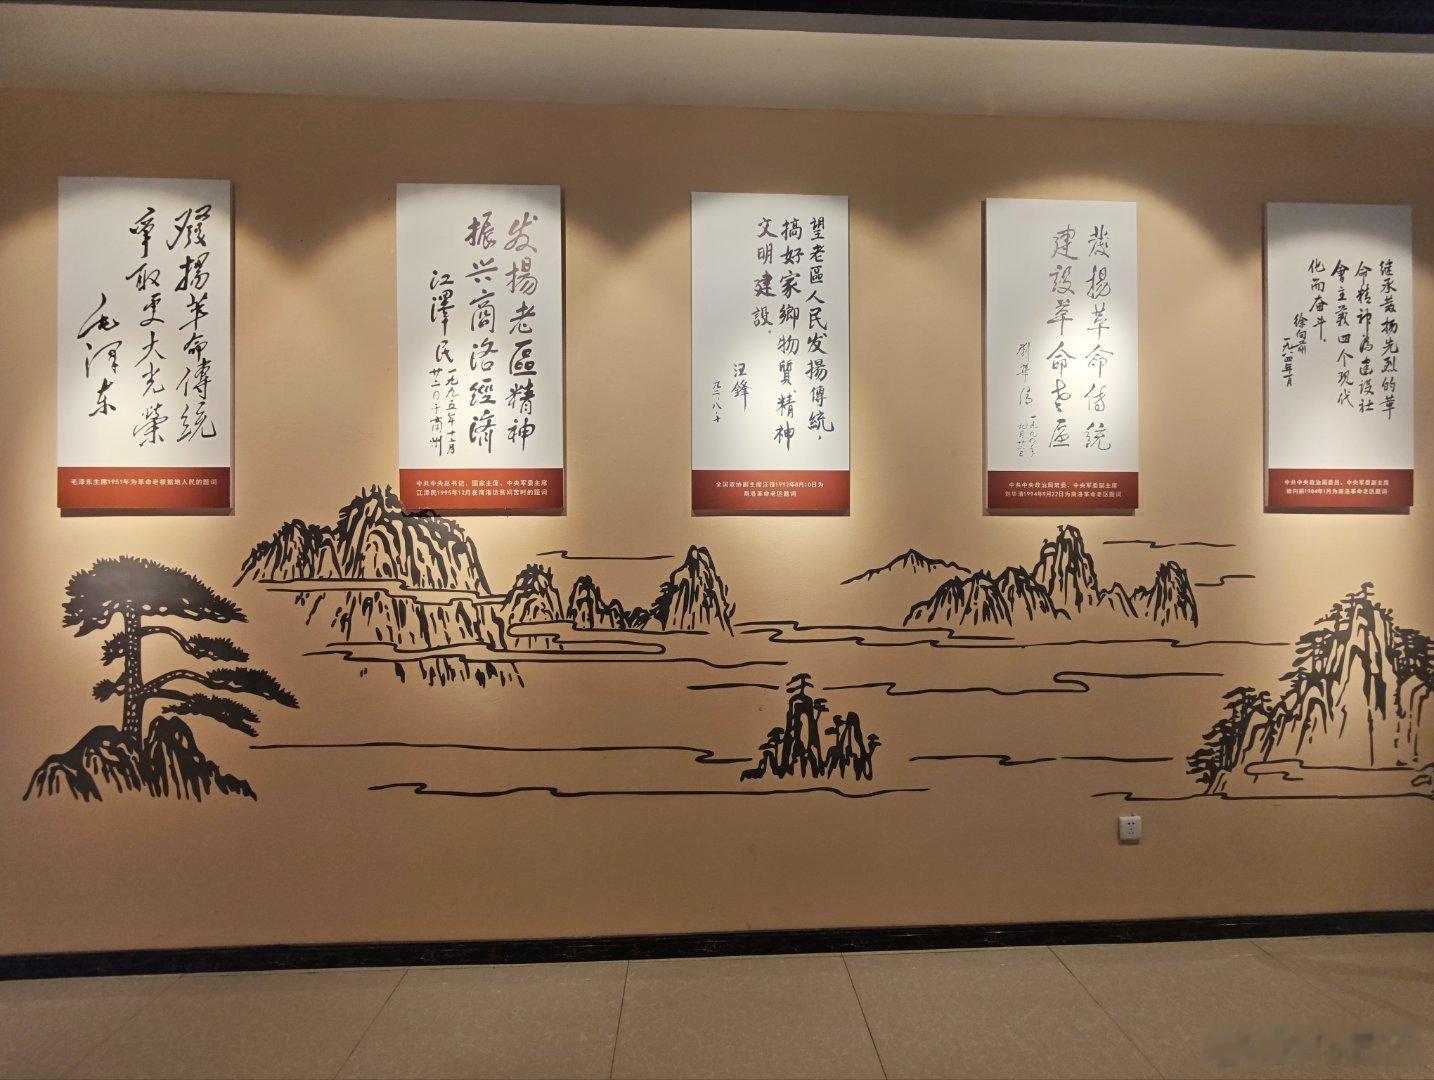 發揚革命傳統
爭取更大光榮
毛澤东
毛泽东主席1951年为革命老根据地人民的题词
发揚老區精神
振兴商洛經濟
江澤民
一九九五年十二月
廿二日于商州
中共中央总书记、国家主席、中央军委主席
江泽民1995年12月在商洛访贫问苦时的题词
望老區人民发揚傳統，
搞好家鄉物質精神
文明建設．
汪鋒
九二．八．十
全国政协副主席汪锋1992年8月10日为
商洛革命老区题词
發揚革命傳統
建設革命老區
劉華清
一九九四年
九月廿二日
中共中央政治局常委、中央军委副主席
刘华清1994年9月22日为商洛革命老区题词
继承發扬先烈的革
命精神為建设社
會主義四个现代
化而奋斗．
徐向前
一九八四年一月
中共中央政治局委员、中央军委副主席
徐向前1984年1月为商洛革命老区题词